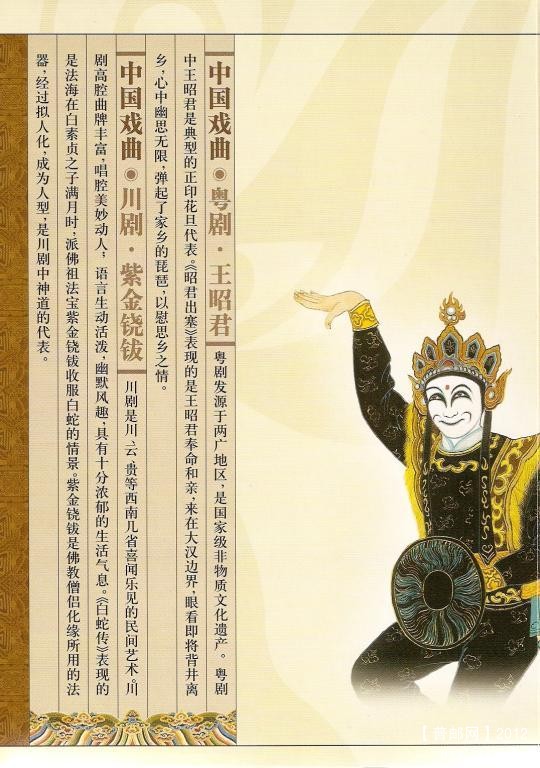 中国戏曲●粤剧·王昭君 粤剧发源于两广地区，是国家级非物质文化遗产。粤剧
中王昭君是典型的正印花旦代表。《昭君出塞》表现的是王昭君奉命和亲，来在大汉边界，眼看即将背井离
乡，心中幽思无限，弹起了家乡的琵琶，以慰思乡之情。
中国戏曲●川剧·紫金铙钹 川剧是川、云、贵等西南几省喜闻乐见的民间艺术。川
剧高腔曲牌丰富，唱腔美妙动人；语言生动活泼，幽默风趣，具有十分浓郁的生活气息。《白蛇传》表现的
是法海在白素贞之子满月时，派佛祖法宝紫金铙钹收服白蛇的情景。紫金铙钹是佛教僧侣化缘所用的法
器，经过拟人化，成为人型，是川剧中神道的代表。
2012